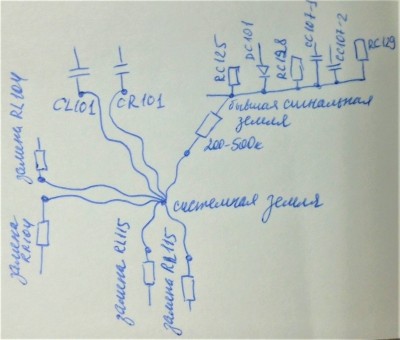 RC125
DC101
RC128
CC107-1
CC107-2
RC129
CL101
CR101
бывшая сигнальная
земля
200-500к
замена RL104
замена
RR104
системная земля
замена RL115
замена RR115